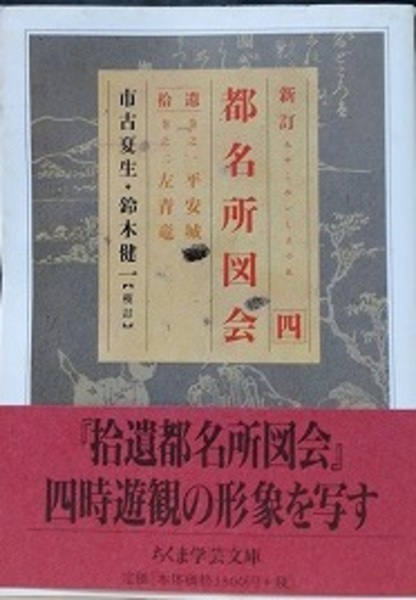 新訂
都名所図会
四
拾遺
巻之一 平安城
巻之二 左青竜
市古夏生・鈴木健一【校訂】
『拾遺都名所図会』
四時遊観の形象を写す
ちくま学芸文庫